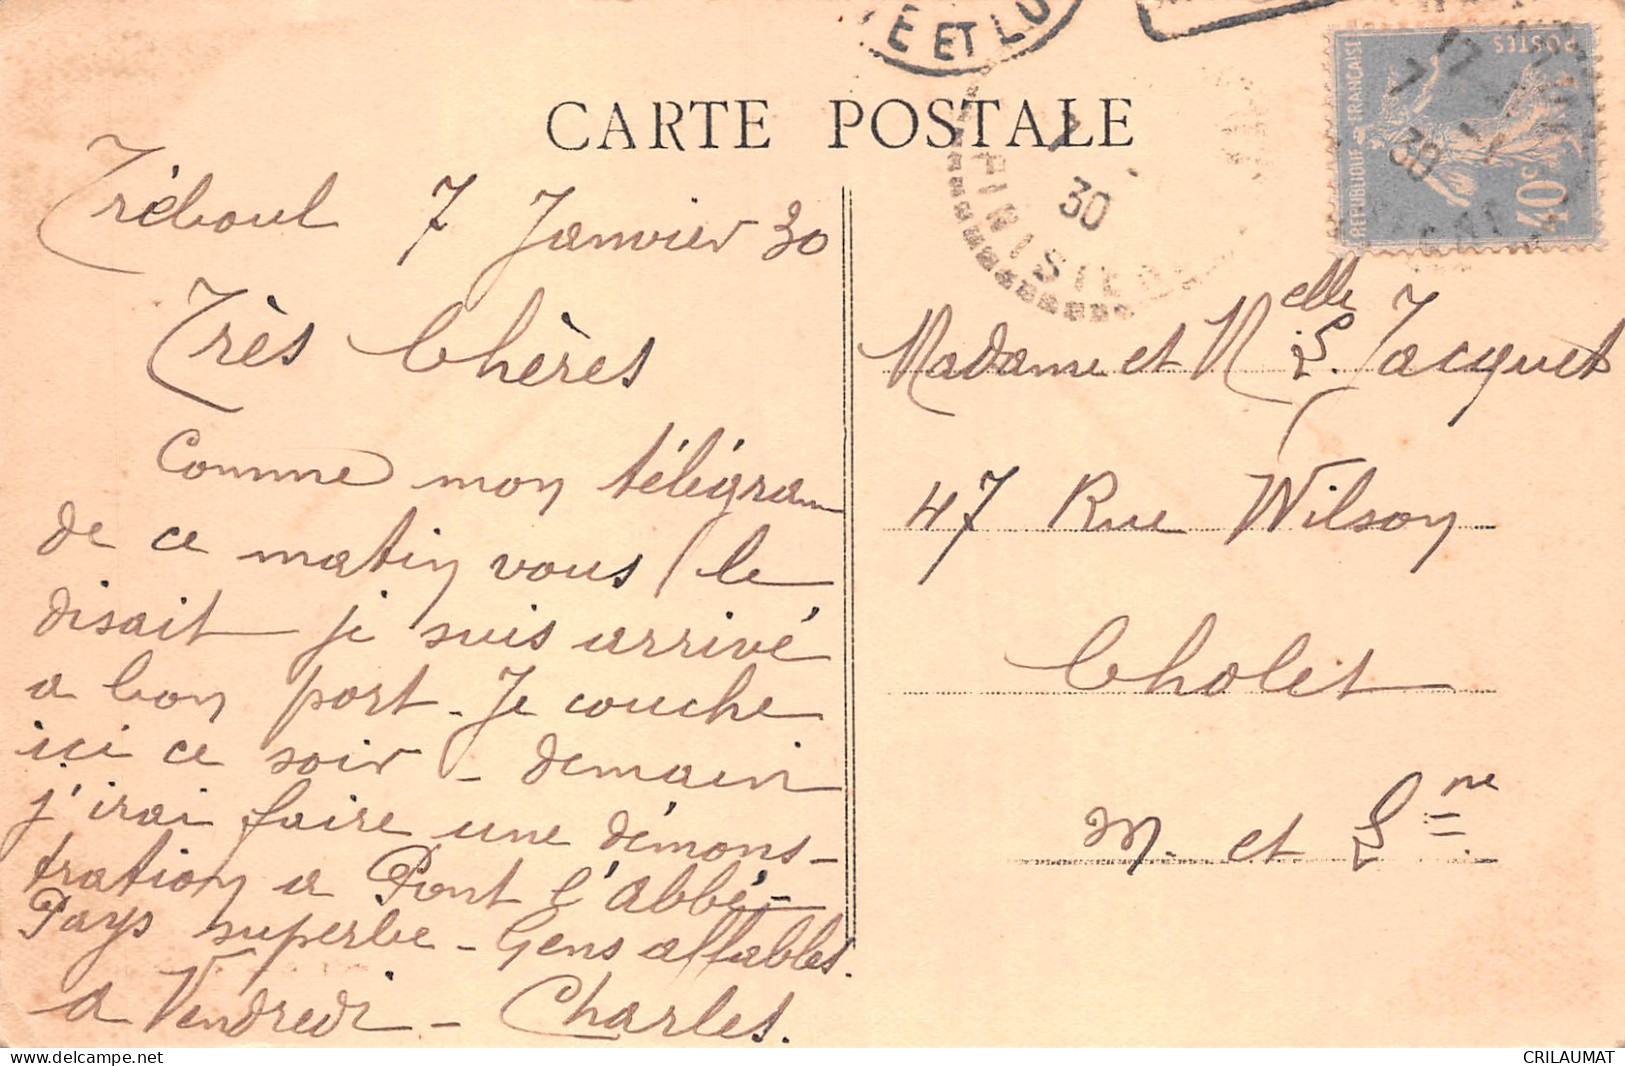 E ET LO
CARTE POSTALE
7
30
FINISTER
17
7
30
POSTES
REPUBLIQUE FRANÇAISE
40c
Tréboul 7 Janvier 30
Très Chères
Comme mon télégram
de ce matin vous le
disait je suis arrivé
a bon port - Je couche
ici ce soir - demain
j'irai faire une démons-
tration a Pont l'abbé -
Pays superbe - Gens affables.
a Vendredi - Charles.
Madame et Melle L. Jacquet
47 Rue Wilson
Cholet
M. et L.
CRILAUMAT